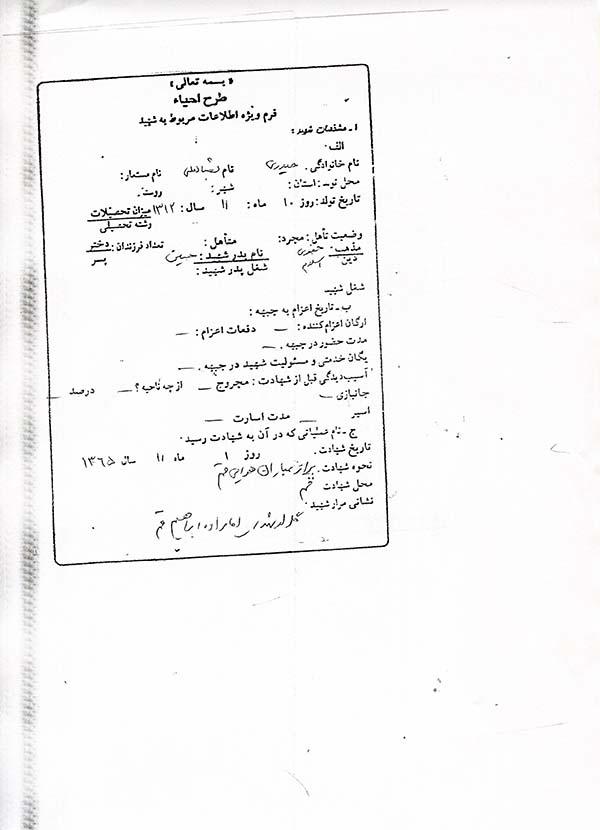 « بسمه تعالی »
طرح احیاء
فرم ویژه اطلاعات مربوط به شهید
۱ـ مشخصات شهید :
الف:
نام خانوادگی . حیدری نام نام مستعار :
محل تولد : استان : شهر : روستا .
تاریخ تولد : روز ۱۰ ماه : ۱۱ سال : ۱۳۱۲ میزان تحصیلات
رشته تحصیلی
وضعیت تأهل : مجرد : متأهل : تعداد فرزندان : دختر
پسر
مذهب : جعفری نام پدر شهید : حسین
دین اسلام شغل پدر شهید :
شغل شهید
ب ـ تاریخ اعزام به جبهه :
ارگان اعزام کننده : ـ دفعات اعزام : ـ
مدت حضور در جبهه . ـ
یگان خدمتی و مسئولیت شهید در جبهه . ـ
آسیب دیدگی قبل از شهادت : مجروح ـ از چه ناحیه ؟ ـ درصد ـ
جانبازی ـ
اسیر ـ مدت اسارت ـ
ج ـ نام عملیاتی که در آن به شهادت رسید .
تاریخ شهادت . روز ۱ ماه ۱۱ سال ۱۳۶۵
نحوه شهادت . براثر بمباران هوایی قم
محل شهادت قم
نشانی مزار شهید .
امامزاده ابراهیم قم